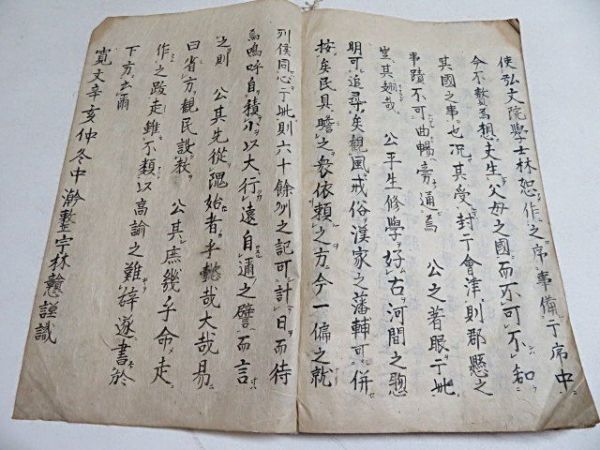 使弘文院學士林恕作之序事備于序中
今不贅焉想夫生父母之國而不可不知
其國之事也况其受封于會津則郡縣之
事蹟不可曲暢旁通焉 公之著眼于此
豈其哉 公平生修學好古河間之
明可追尋矣觀風戒俗漢家之藩輔可併
按矣民具瞻之依頼之方今一偏之就
列侯同心于此則六十餘州之記可計日而待
焉嗚呼自積小以大行遠自邇之譬而言
之則 公其先從隗始者乎懿哉大哉易
曰省方觀民設教 公其庶幾乎命走
作之跋走雖不類以高諭之難辞遂書於
下方云爾
寛文辛亥仲冬中澣整宇林戇謹識